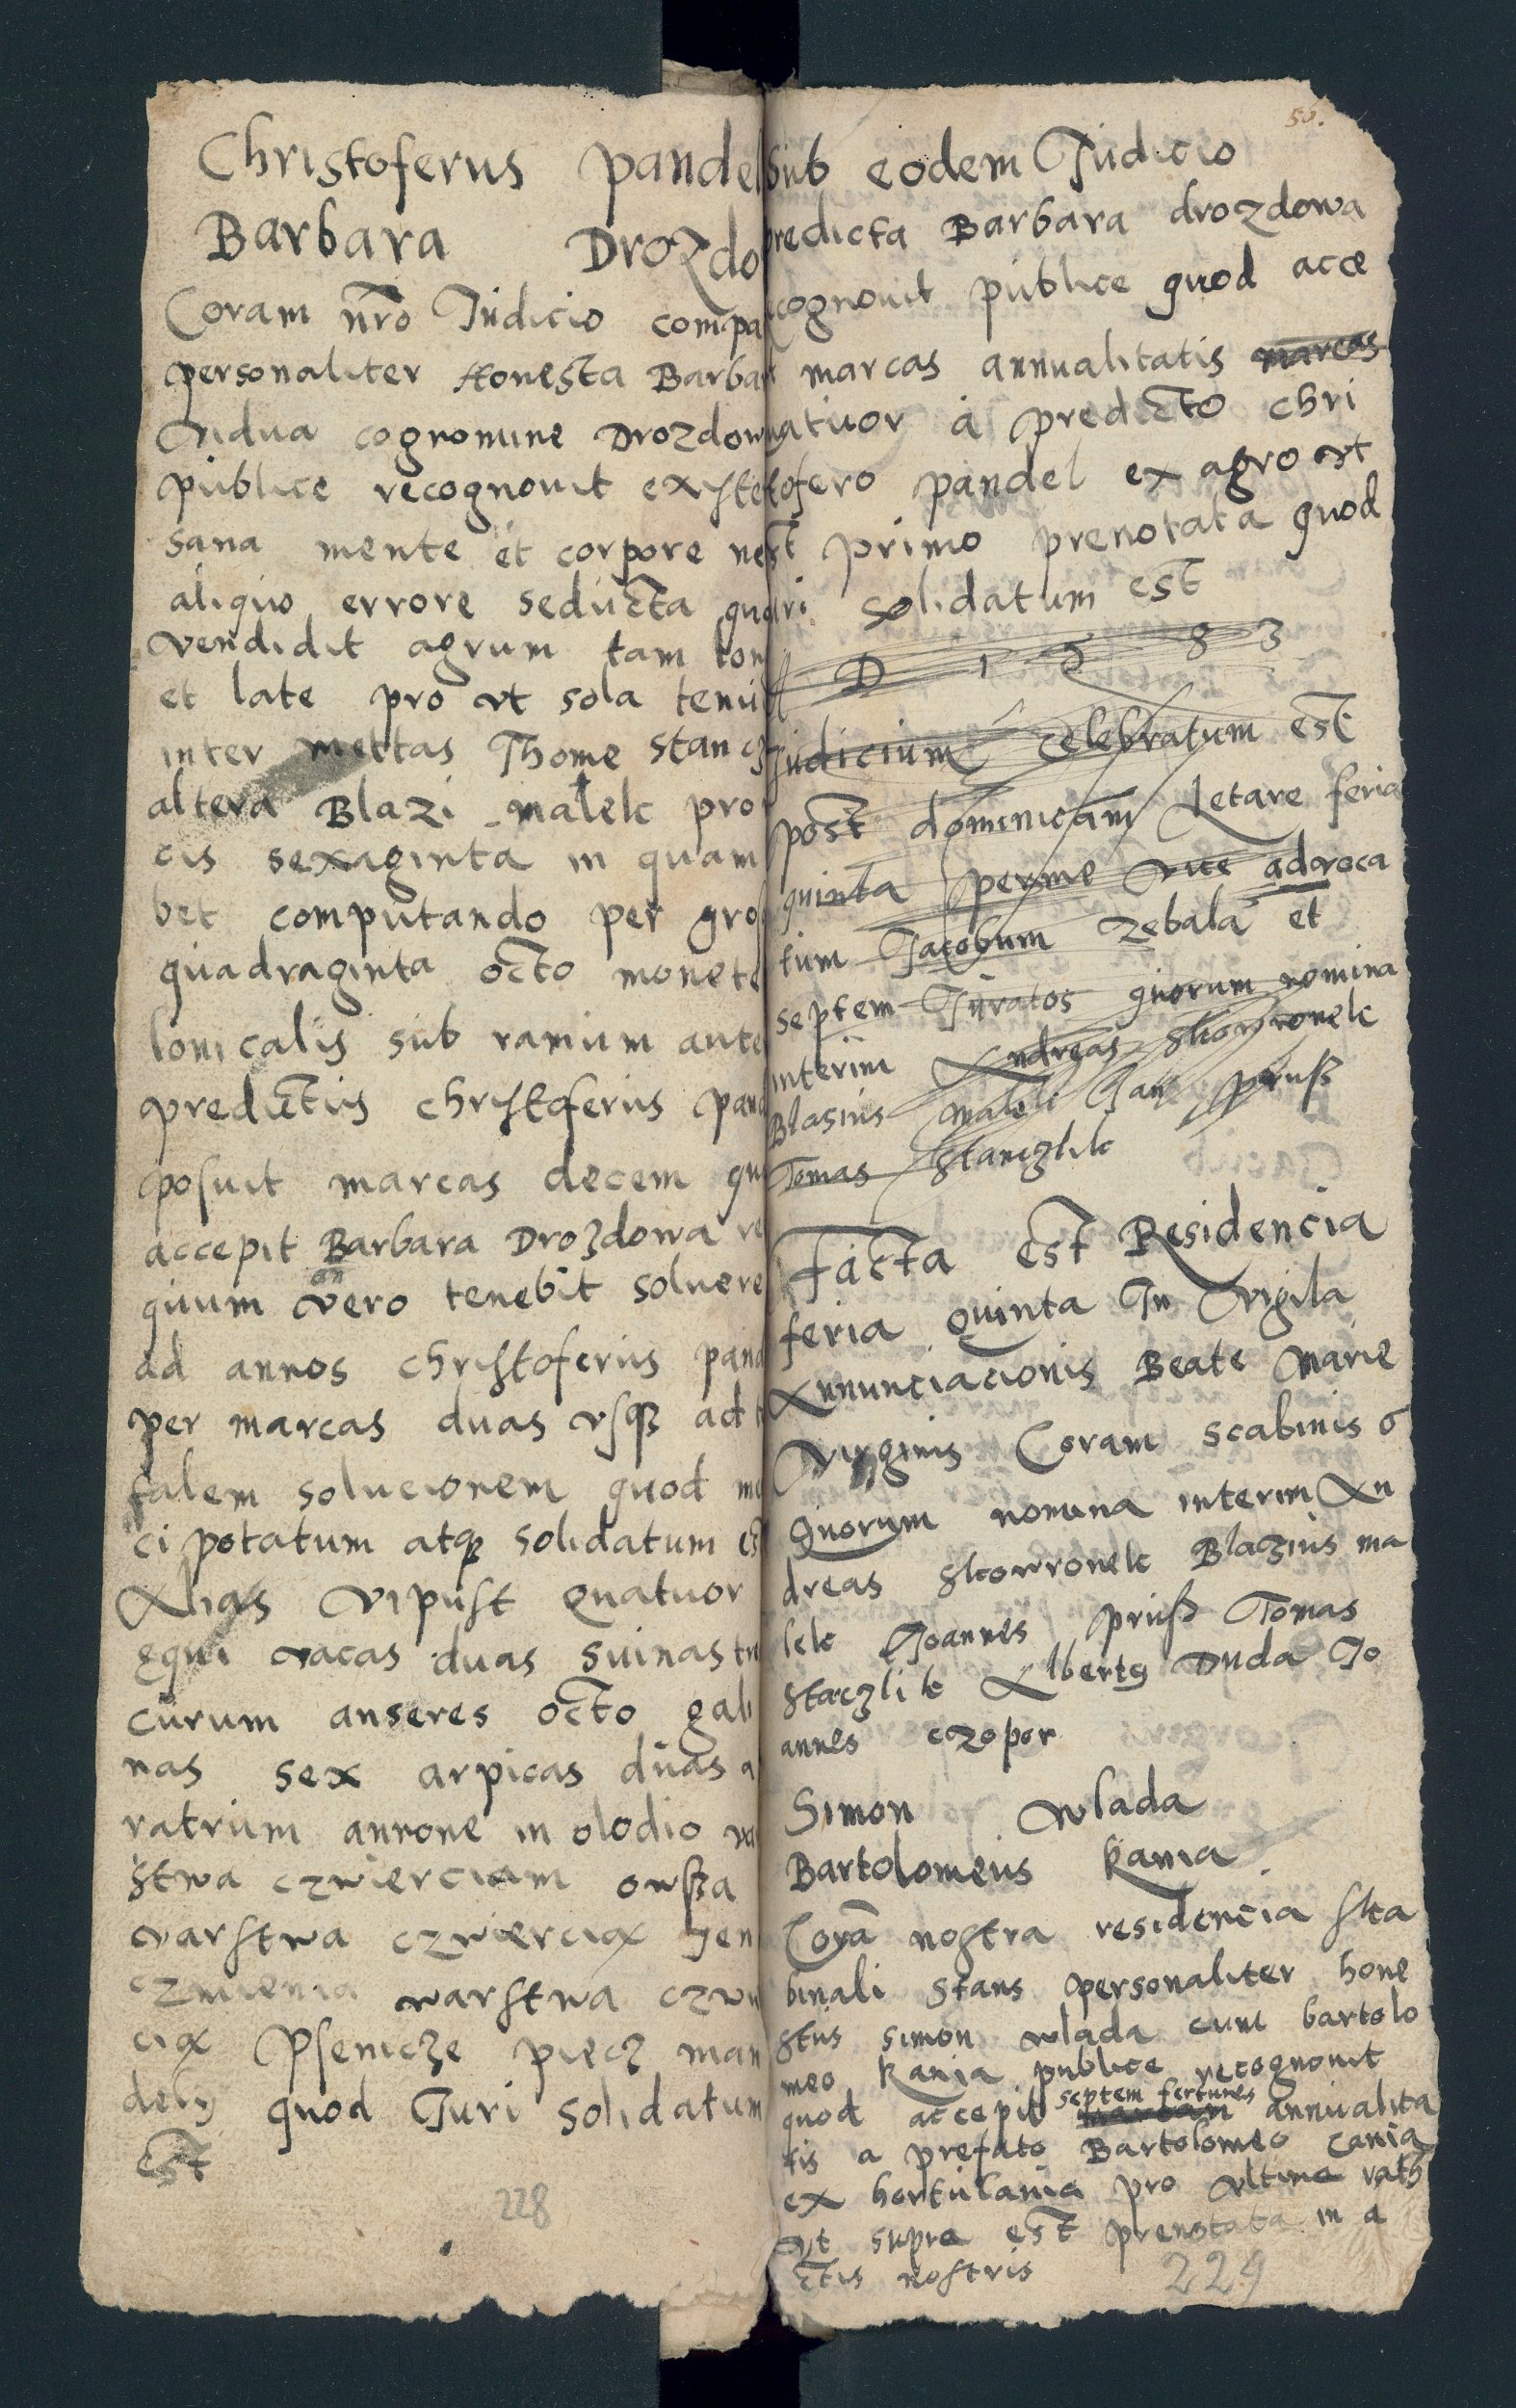 Christoferus pandel
Barbara Drozdo
Coram nro Judicio compa
personaliter Honesta Barbar
vidua cognomine Drozdow
publice recognouit existe
sana mente et corpore ne
aliquo errore seducta qu
vendidit agrum tam lon
et late pro vt sola tenu
inter mettas Thome stancz
altera Blazi malek pro
cis sexaginta in quam
bet computando per gros
quadraginta octo monete
lonicalis sub ramum ante
predictus christoferus pand
posuit marcas decem qu
accepit Barbara Drozdowa re
quum vero tenebit soluere
ad annos christoferus pand
per marcas duas vsqз ad
talem solucionem quod me
ci potatum atqз solidatum es
vipust quatuor
equi vacas duas suinas tr
curum anseres octo gali
nas sex arpicas duas a
ratrum annone in olodio wa
stwa czwierciam owssa
varstwa czwiercia Jen
czmienia warstwa czwi
cia psenicze piecz man
dely quod Juri solidatum
est
228
50.
Sub eodem Judicio
predicta Barbara drozdowa
cognouit publice quod acce
marcas annualitatis marcas
uatuor a predicto chri
tofero pandel ex agro vt
st primo prenotata quod
uri solidatum est
D 1 5 8 3
Judicium celebratum est
post dominicam Letare feria
quinta perme vice advoca
tum Jacobum zebala et
septem Juratos quorum nomina
interim Andreas skowronek
Blasius malek Jan pruss
Tomas Stanczlik
Facta est Residencia
feria quinta In vigila
Annunciacionis Beate Marie
virginis Coram scabinis 6
quorum nomina interim An
dreas skowronek Blazius ma
lek Joannes pruss Tomas
staczlik Albertg Duda Jo
annes czopor
Simon wlada
Bartolomeus kania
Corā nostra residencia ska
binali stans personaliter hone
stus simon wlada cum bartolo
meo kania publice recognouit
quod accepit septem fertunes annualita
tis a prefato Bartolomeo cania
ex hortulania pro vltima rath
vt supra est prenotata in a
ctis nostris
229